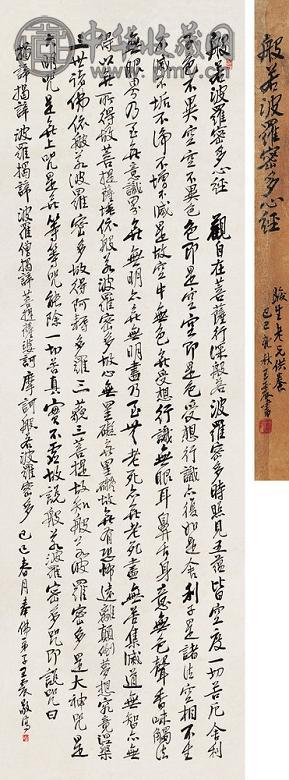 般若波羅密多心經 觀自在菩薩行深般若波羅密多時照見五蘊皆空度一切苦厄舍利
子色不異空空不異色色即是空空即是色受想行識亦復如是舍利子是諸法空相不生
不滅不垢不淨不增不減是故空中無色無受想行識無眼耳鼻舌身意無色聲香味觸法
無眼界乃至無意識界無無明亦無無明盡乃至無老死亦無老死盡無苦集滅道無智亦無
得以無所得故菩提薩埵依般若波羅密多故心無罣礙無罣礙故無有恐怖遠離顛倒夢想究竟涅槃
三世諸佛依般若波羅密多故得阿耨多羅三藐三菩提故知般若波羅密多是大神咒是
大明咒是無上咒是無等等咒能除一切苦真實不虛故說般若波羅密多咒即說咒曰
揭諦揭諦 波羅揭諦 波羅僧揭諦 菩提薩婆訶 摩訶般若波羅密多 己巳春月奉佛弟子王震敬寫
般若波羅密多心經
老元供養
己巳秋王震書
中华收藏网